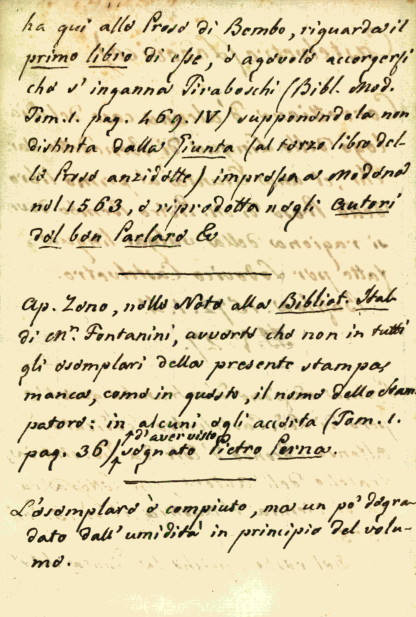 ha qui alle Prose di Bembo, riguarda il
primo libro di esse, è agevole accorgersi
che s'inganna Tiraboschi (Bibl. Mod.
Tom. 1. pag. 469. IV) supponendola non
distinta dalla Giunta (al terzo libro del-
le Prose anzidette) impressa a Modena
nel 1563, e riprodotta negli Autori
del ben Parlare &
Ap. Zeno, nelle Note alla Bibliot. Ital.
di Mr. Fontanini, avverte che non in tutti
gli esemplari della presente stampa,
manca, come in questo, il nome dello Stam-
patore: in alcuni egli accerta (Tom. 1.
pag. 36) d'aver visto
segnato Pietro Perna.
L'esemplare è compiuto, ma un po' degra-
dato dall'umidità in principio del volu-
me.